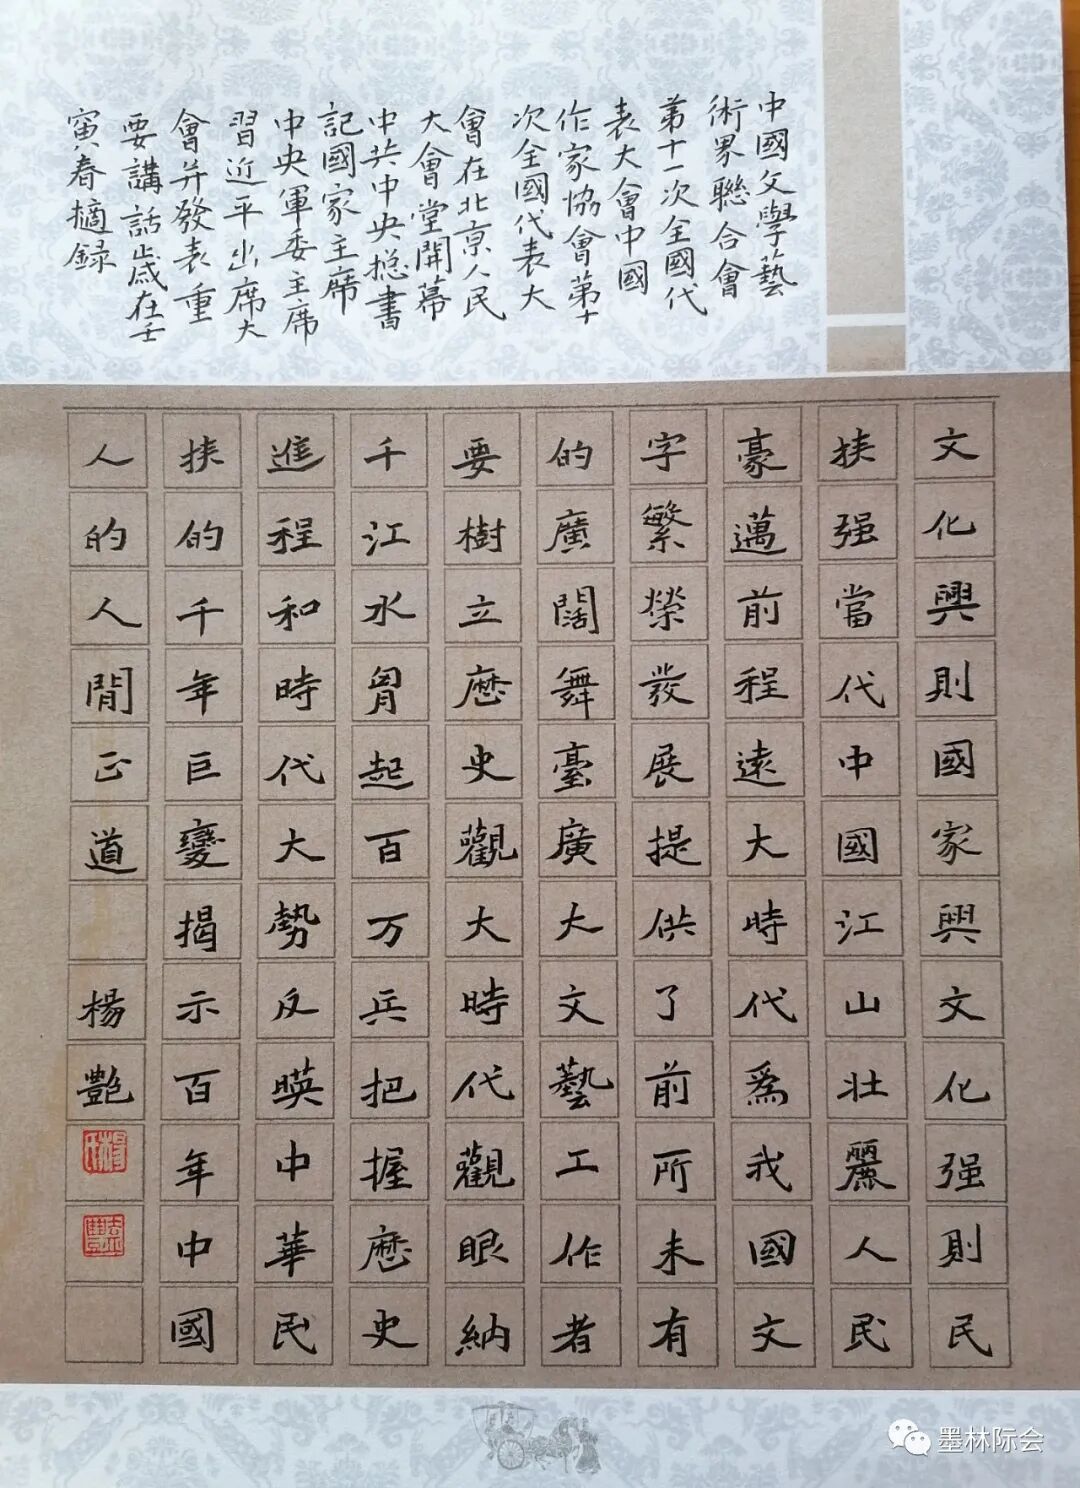 中國文學藝
術界聯合會
第十一次全國代
表大會中國
作家協會第十
次全國代表大
會在北京人民
大會堂開幕
中共中央捴書
記國家主席
中央軍委主席
習近平出席大
會并發表重
要講話歲在壬
寅春摘録
文化興則國家興文化强則民
族强當代中國江山壮麗人民
豪邁前程遠大時代爲我國文
字繁榮發展提供了前所未有
的廣闊舞臺廣大文藝工作者
要樹立厯史觀大時代觀眼納
千江水胷起百万兵把握厯史
進程和時代大勢反暎中華民
族的千年巨變揭示百年中國
人的人間正道 楊艷
楊氏
墨林际会